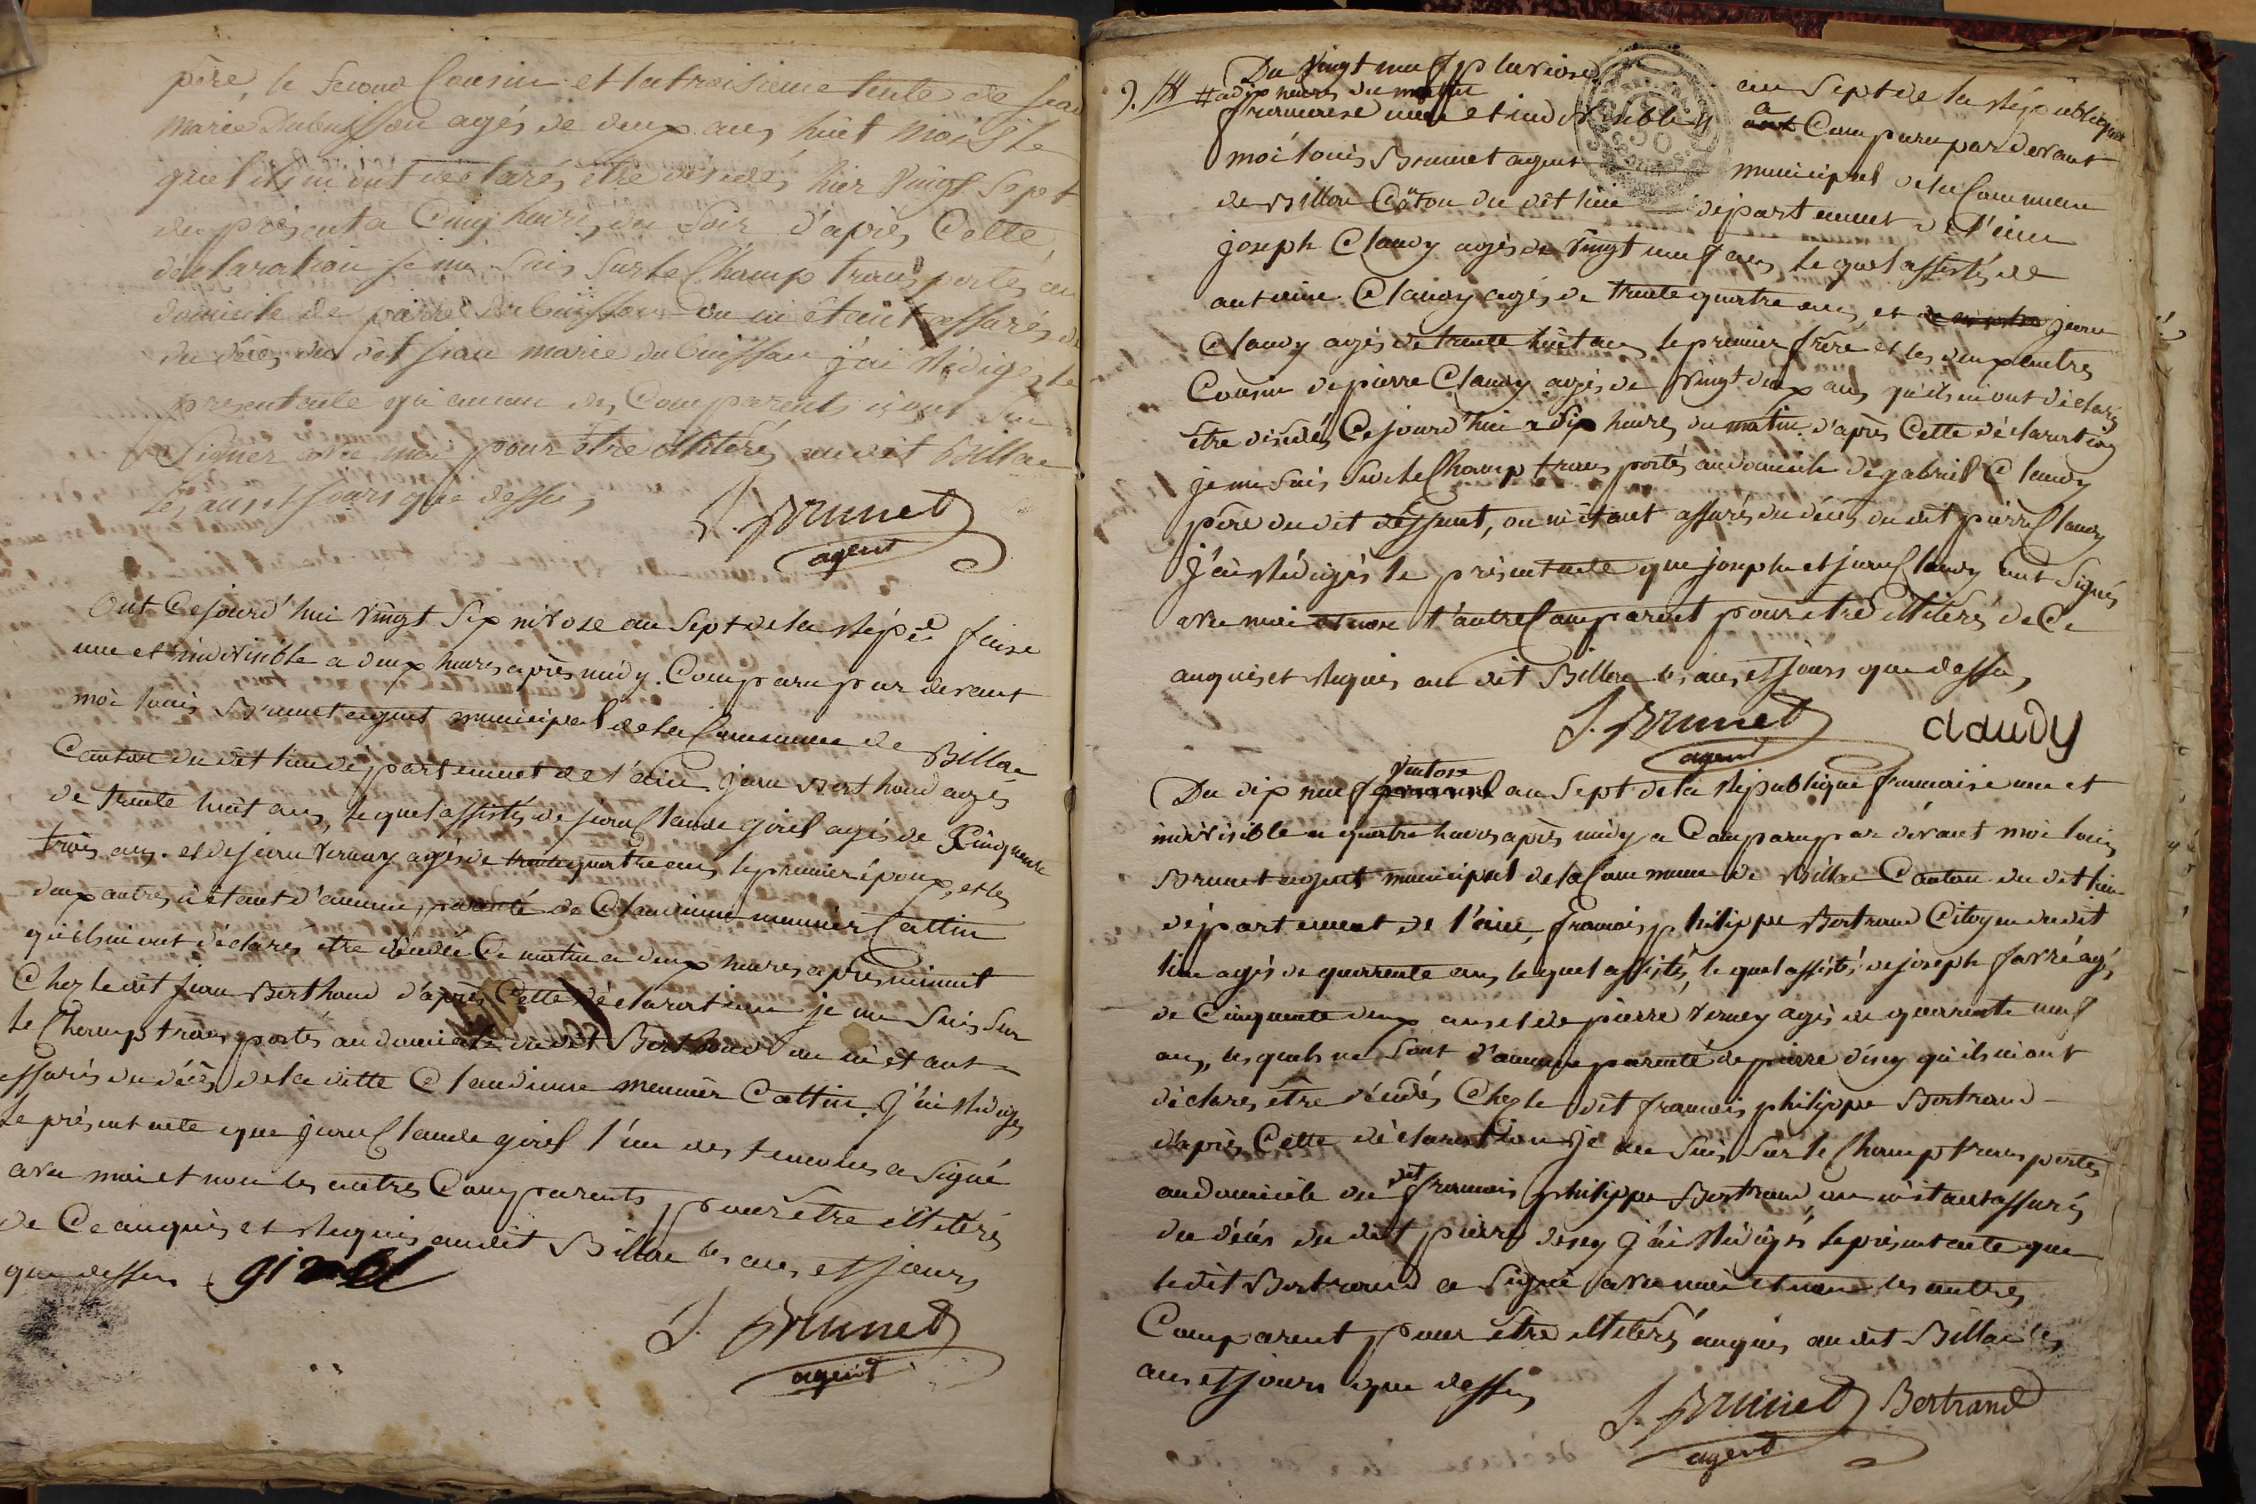 père, le second Cousin et la troisieme tente de jean
marie Dubuisson agés de deux ans huit mois le
quel ils m'ont déclarés être décédés hier vingt sept
du présent a Cinq heures du soir d'après Cette
déclaration je me suis sur le Champ transportés au
domicile de pierre Dubuisson ou m'étant assurés
du décès du dit jean marie dubuisson j'ai rédigés le
présent acte qu'aucun des Comparents n'ont su
Signer avec moi pour être illitérés au dit Billac
les ans et jours que dessus
J. Brunet
agent
Ont Cejourd'hui vingt six nivose an Sept de la Répée faise
une et indivisible a deux heures après midy. Comparu par devant
moi louis Brunet agent municipal de la Commune de Billac
Canton du dit lieu département de l'ain jean Berthoud agés
de trente huit ans, lequel assistés de jean Claude girel agés de Cinquante
trois ans. et de jean vernay agés de trente quatre ans le premier époux, et les
deux autres n'étant d'aucune parenté de Claudinne munier Cattin
qu'ils m'ont déclarés être décédée Ce matin a deux heures après minuit
Chez le dit jean Berthoud d'après Cette déclaration je me suis sur
le Champ transportés au domicile du dit Berthoud ou m'étant
assurés du décès de la ditte Claudinne meunier Cattin. j'ai rédigés
le présent acte que jean Claude girel l'un des temoins a signé
avec moi et non les autres Comparents pour être illitérés
de Ce anquis et Requis audit Billac les ans et jours
que dessus girel
J. Brunet
agent
Du vingt neuf pluviose an Sept de la République
# a dix heures du matin
francaise une et indivisible # a Comparu par devant
moi louis Brunet agent municipal de la Commune
de Billac Caton du dit lieu département de l'ain
joseph Claudy agés de vingt neuf ans, lequel assistés de
antoine Claudy agés de trente quatre ans, et jean
Claudy agés de trente huit ans le premier frère et les deux autres
Cousin de pierre Claudy agés de vingt deux ans qu'ils m'ont déclarés
être décédés Cejourd'hui a dix heures du matin. d'après Cette déclaration
je me suis sur le Champ transportés au domicile de gabriel Claudy
père du dit déffunt, ou m'étant assurés du décès du dit pierre Claudy
j'ai rédigés le présent acte que joseph et jean Claudy ont signés
avec moi et non l'autre Comparent pour être illitérés de Ce
anquis et Requis au dit Billac les ans et jours que dessus
J. Brunet
agent
claudy
Du dix neuf ventose an Sept de la République francaise une et
indivisible a quatre heures après midy a Comparu par devant moi louis
Brunet agent municipal de la Commune de Billac Canton du dit lieu
département de l'ain, francois philippe Bertrand Citoyen du dit
lieu agés de quarrente ans, lequel assistés, le quel assistés de joseph favre agés
de Cinquante deux ans et de pierre verney agés de quarrente neuf
ans, lesquels ne sont d'aucune parenté de pierre désey qu'ils m'ont
déclarés être décédés Chez le dit francois philippe Bertrand
d'après Cette déclaration je me suis sur le Champ transportés
au domicile du dit francois philippe Bertrand ou m'étant assurés
du décès du dit pierre desey j'ai rédigés le présent acte que
le dit Bertrand a signé avec moi et non les autres
Comparent pour être illitérés anquis au dit Billac les
ans et jours que dessus
J. Brunet Bertrand
agent